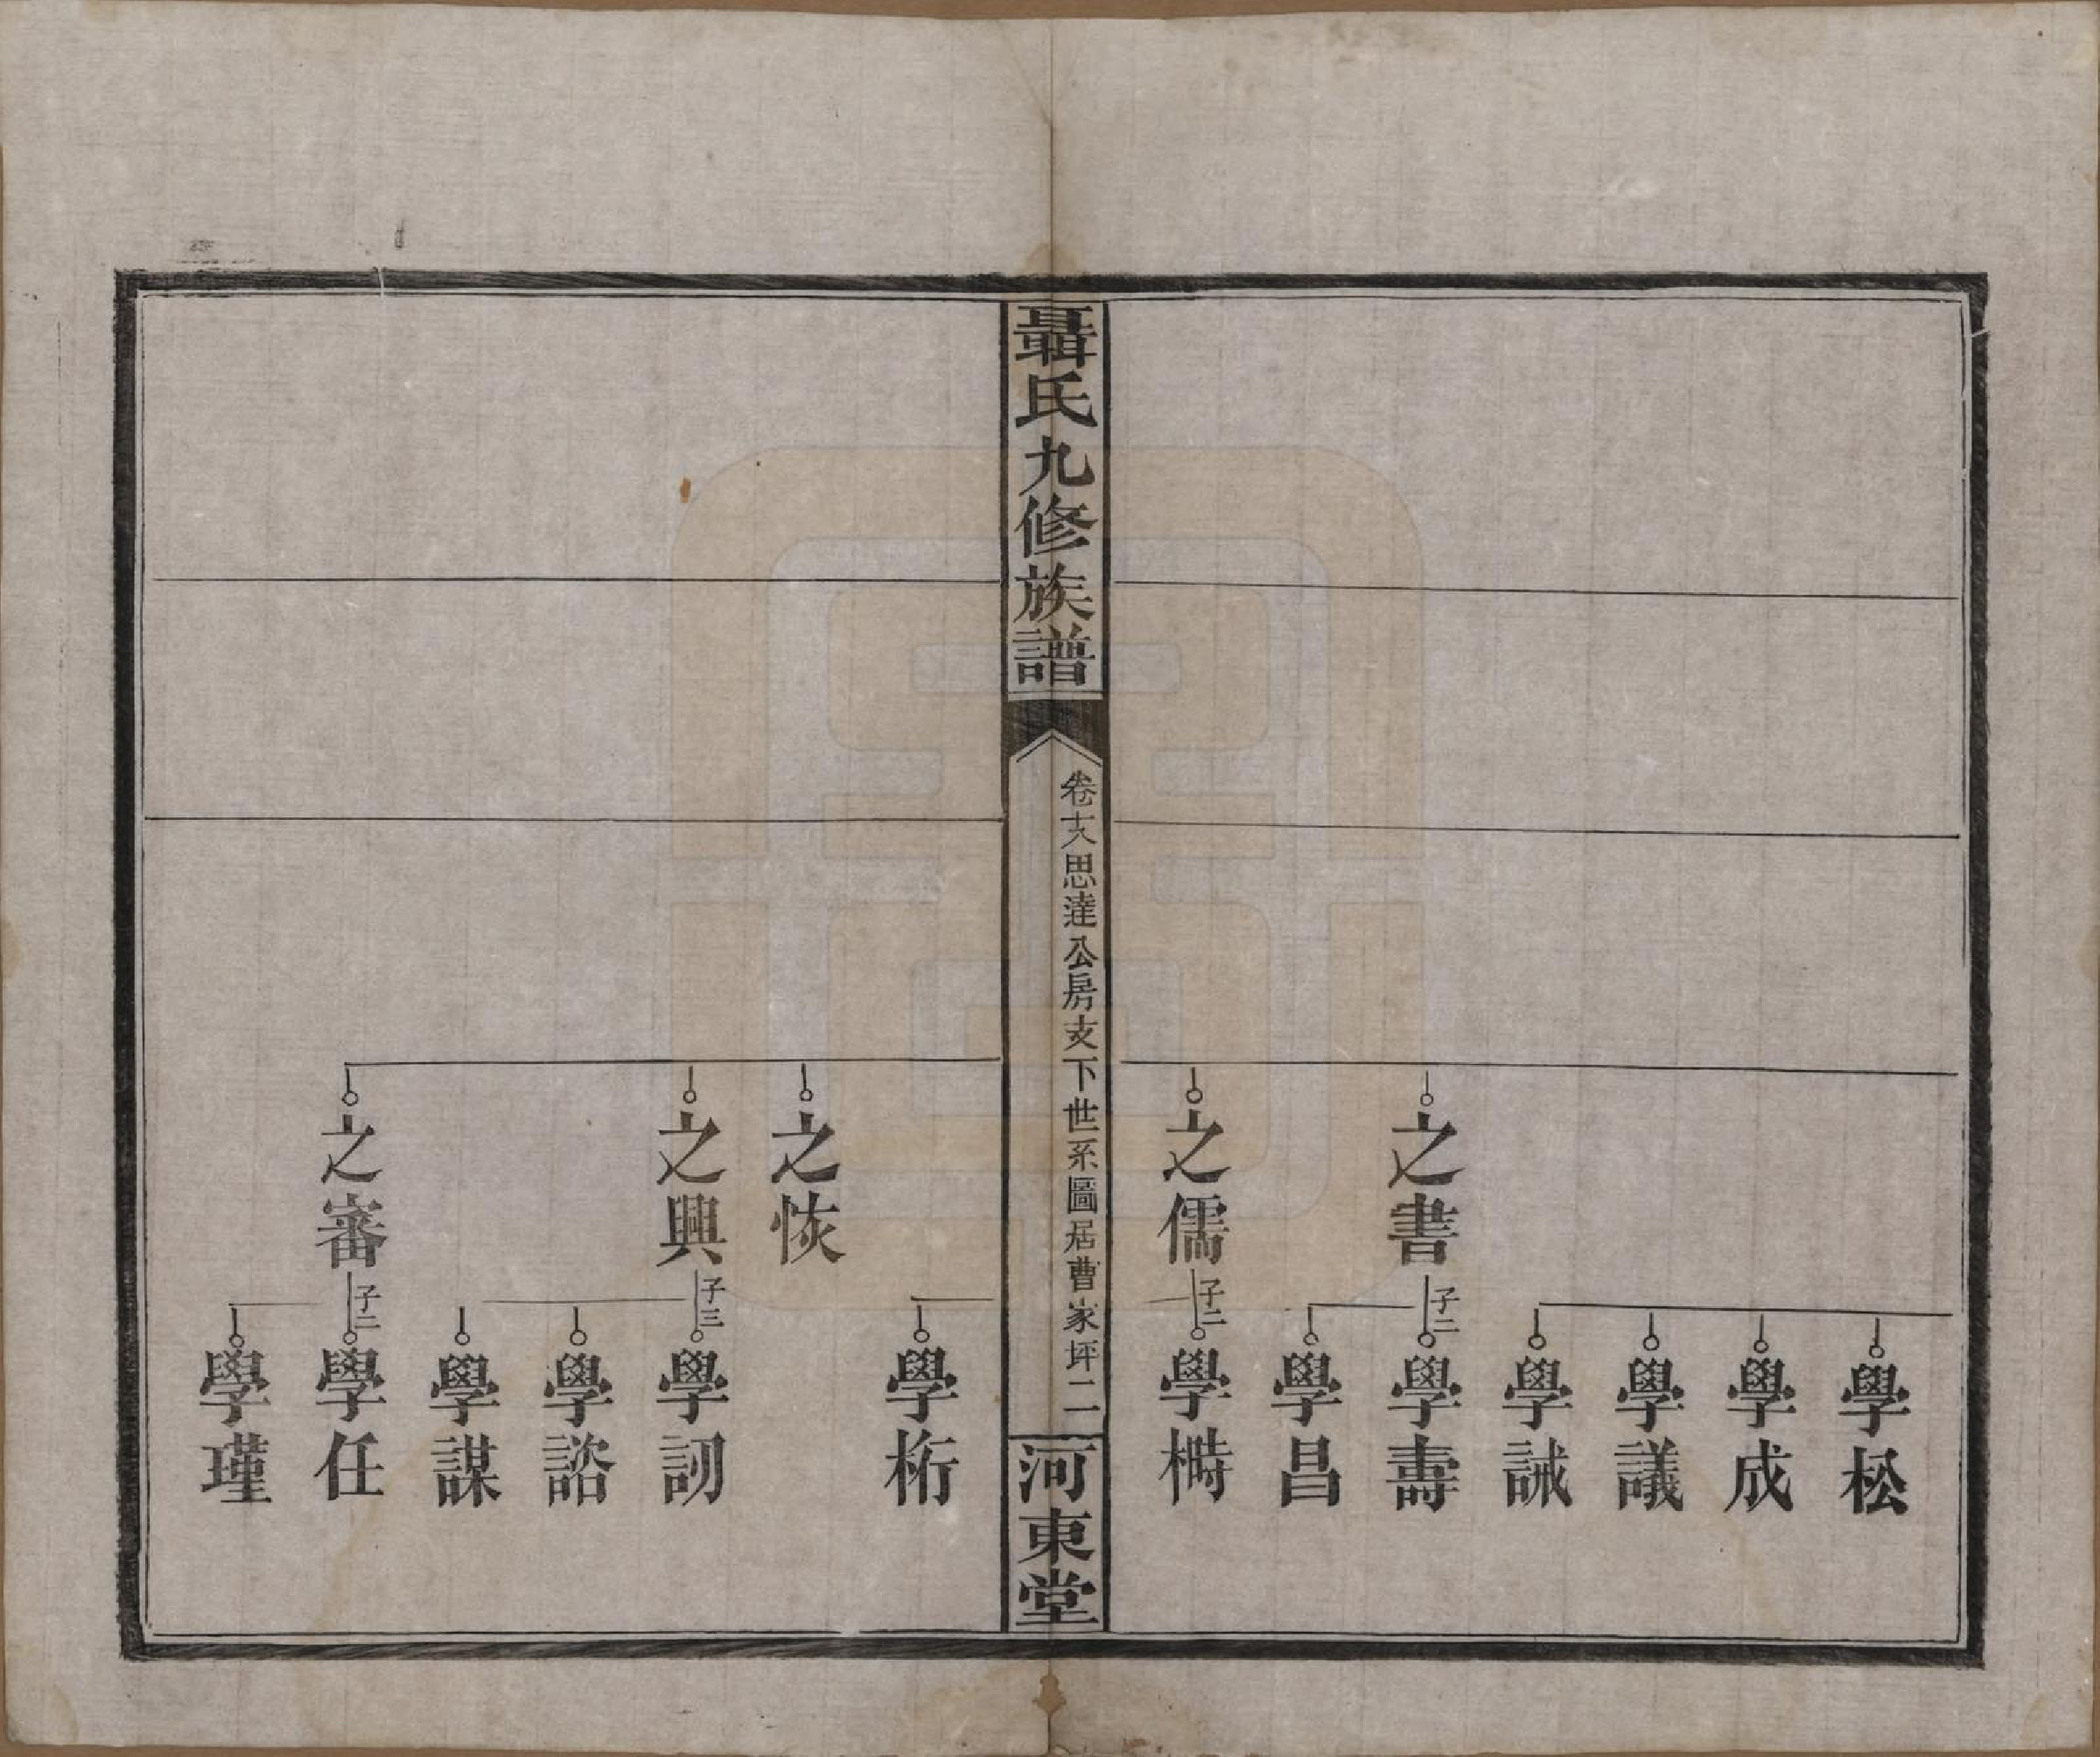 學松
學成
學議
學誡
之書
子二
學壽
學昌
之儒
子二
學檮
聶氏九修族譜
卷十八思達公房支下世系圖居曹家坪二
河東堂
學桁
之恢
之興
子三
學訒
學諮
學謀
之審
子二
學任
學瑾